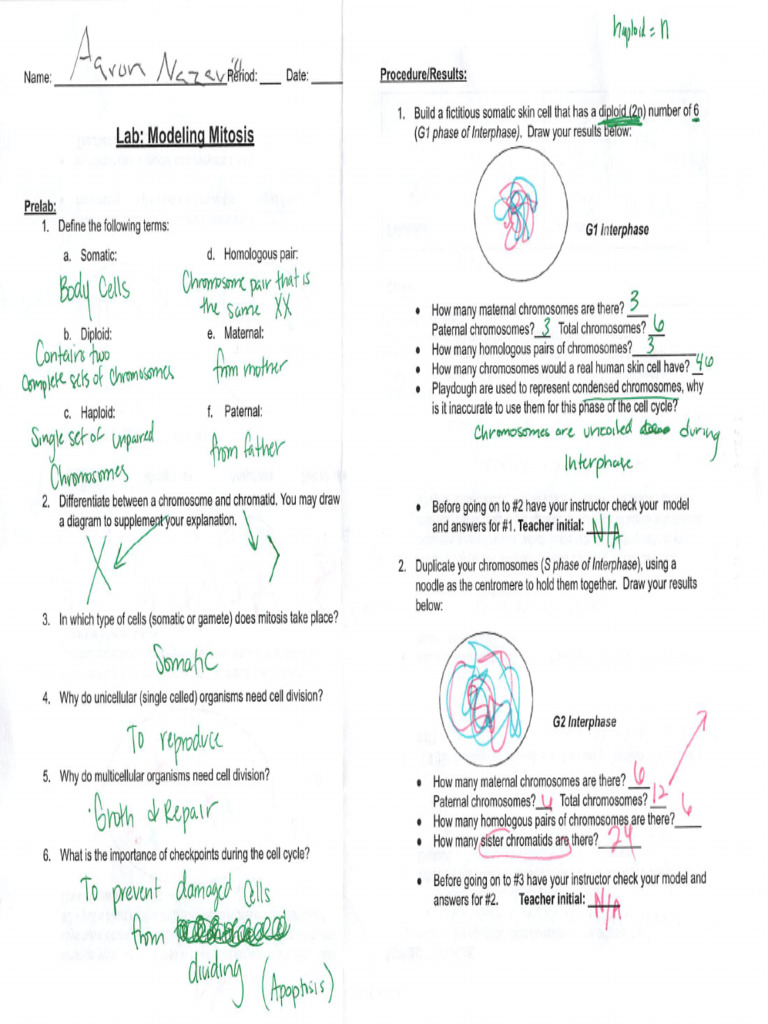 haploid = n
Name: Aaron Nazario Period: ___ Date: _____
Lab: Modeling Mitosis
Prelab:
1. Define the following terms:
a. Somatic:
Body Cells
d. Homologous pair:
Chromosome pair that is
the same XX
b. Diploid:
Contains two
Complete sets of Chromosomes
e. Maternal:
from mother
c. Haploid:
Single set of unpaired
Chromosomes
f. Paternal:
from father
2. Differentiate between a chromosome and chromatid. You may draw
a diagram to supplement your explanation.
3. In which type of cells (somatic or gamete) does mitosis take place?
Somatic
4. Why do unicellular (single celled) organisms need cell division?
To reproduce
5. Why do multicellular organisms need cell division?
Groth & Repair
6. What is the importance of checkpoints during the cell cycle?
To prevent damaged Cells
from
dividing (Apoptisis)
Procedure/Results:
1. Build a fictitious somatic skin cell that has a diploid (2n) number of 6
(G1 phase of Interphase). Draw your results below:
G1 Interphase
• How many maternal chromosomes are there? 3
Paternal chromosomes? 3 Total chromosomes? 6
• How many homologous pairs of chromosomes? 3
• How many chromosomes would a real human skin cell have? 46
• Playdough are used to represent condensed chromosomes, why
is it inaccurate to use them for this phase of the cell cycle?
Chromosomes are uncoiled during
Interphase
• Before going on to #2 have your instructor check your model
and answers for #1. Teacher initial: N/A
2. Duplicate your chromosomes (S phase of Interphase), using a
noodle as the centromere to hold them together. Draw your results
below:
G2 Interphase
• How many maternal chromosomes are there? 6
Paternal chromosomes? 6 Total chromosomes? 12
• How many homologous pairs of chromosomes are there? 6
• How many sister chromatids are there? 24
• Before going on to #3 have your instructor check your model and
answers for #2. Teacher initial: N/A